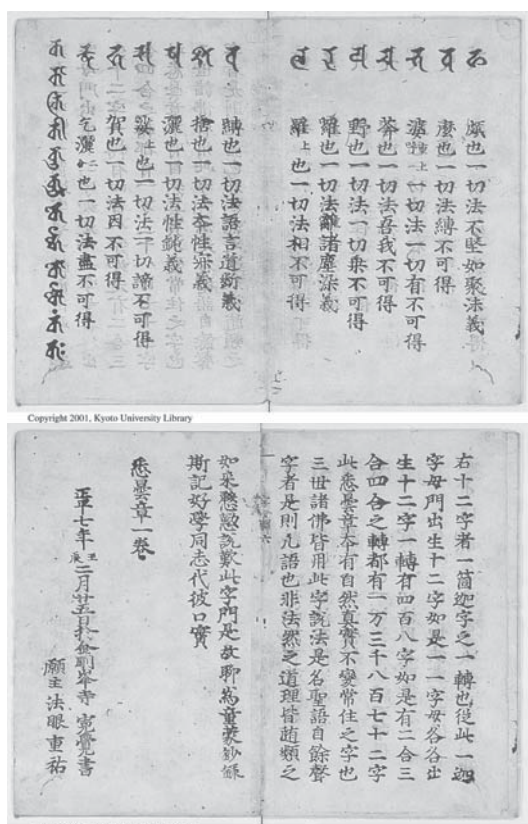 𑖣 頗也一切法不堅如聚沫義
𑖤 麼也一切法縛不可得
𑖥 婆重上也一切法一切有不可得
𑖦 莽也一切法吾我不可得
𑖧 野也一切法一切乘不可得
𑖨 囉也一切法離諸塵染義
𑖩 羅上也一切法相不可得
𑖪 嚩也一切法語言道断義
𑖫 捨也一切法本性寂義
𑖬 灑也一切法性鈍義
𑖭 娑上也一切法一切諦不可得
𑖮 賀也一切法因不可得
𑖎𑖿𑖬 乞灑二合也一切法盡不可得
Copyright 2001, Kyoto University Library
右十二字者一箇迦字之一轉也從此一迦
字母門出生十二字如是一一字母各各出
生十二字一轉有四百八字如是有二合三
合四合之轉都有一万三千八百七十二字
此悉曇章本有自然真實不變常住之字也
三世諸佛皆用此字說法是名聖語自餘聲
字者是則凡語也非法然之道理皆隨類之
如來慇懃說歎此字門是故聊爲童蒙鈔録
斯記好學同志代彼口實
悉曇章一卷
正平七年壬辰二月廿五日於金剛峯寺寛覺書
願主法眼重祐